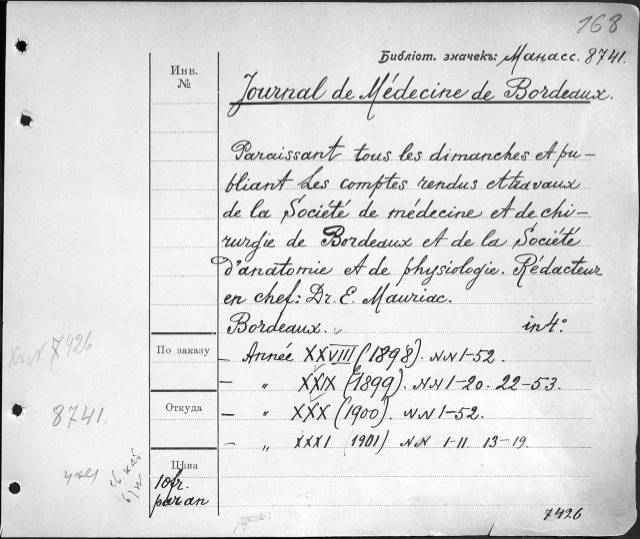 168
Библіот. значекъ: Манасс. 8741.
Инв.
№
Journal de Médecine de Bordeaux.
Paraissant tous les dimanches et pu-
bliant Les comptes rendus et travaux
de la Société de médecine et de chi-
rurgie de Bordeaux et de la Société
d'anatomie et de physiologie. Rédacteur
en chef: Dr. E. Mauriac.
Bordeaux. in 4°
7426
По заказу
Année XXVIII (1898). NN 1-52.
— " XXIX (1899). NN 1-20. 22-53.
8741.
Откуда
— " XXX (1900). NN 1-52.
— " XXXI (1901) NN 1-11 13-19.
Цѣна
10 fr.
par an
7426